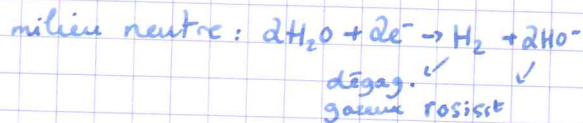 milieu neutre : 2H₂O + 2e⁻ → H₂ + 2HO⁻
dégag. ↙ ↓
gazeux rosisst